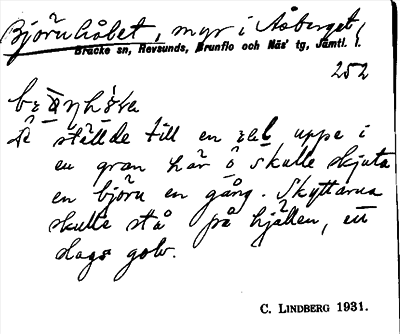 Björnhåbet, myr i Åsberget,
Bräcke sn, Revsunds, Brunflo och Näs' tg, Jämtl. l.
252
De ställde till en uppe i
en gran här ô skulle skjuta
en björn en gång. Skyttarna
skulle stå på hjällen, ett
slags golv.
C. LINDBERG 1931.